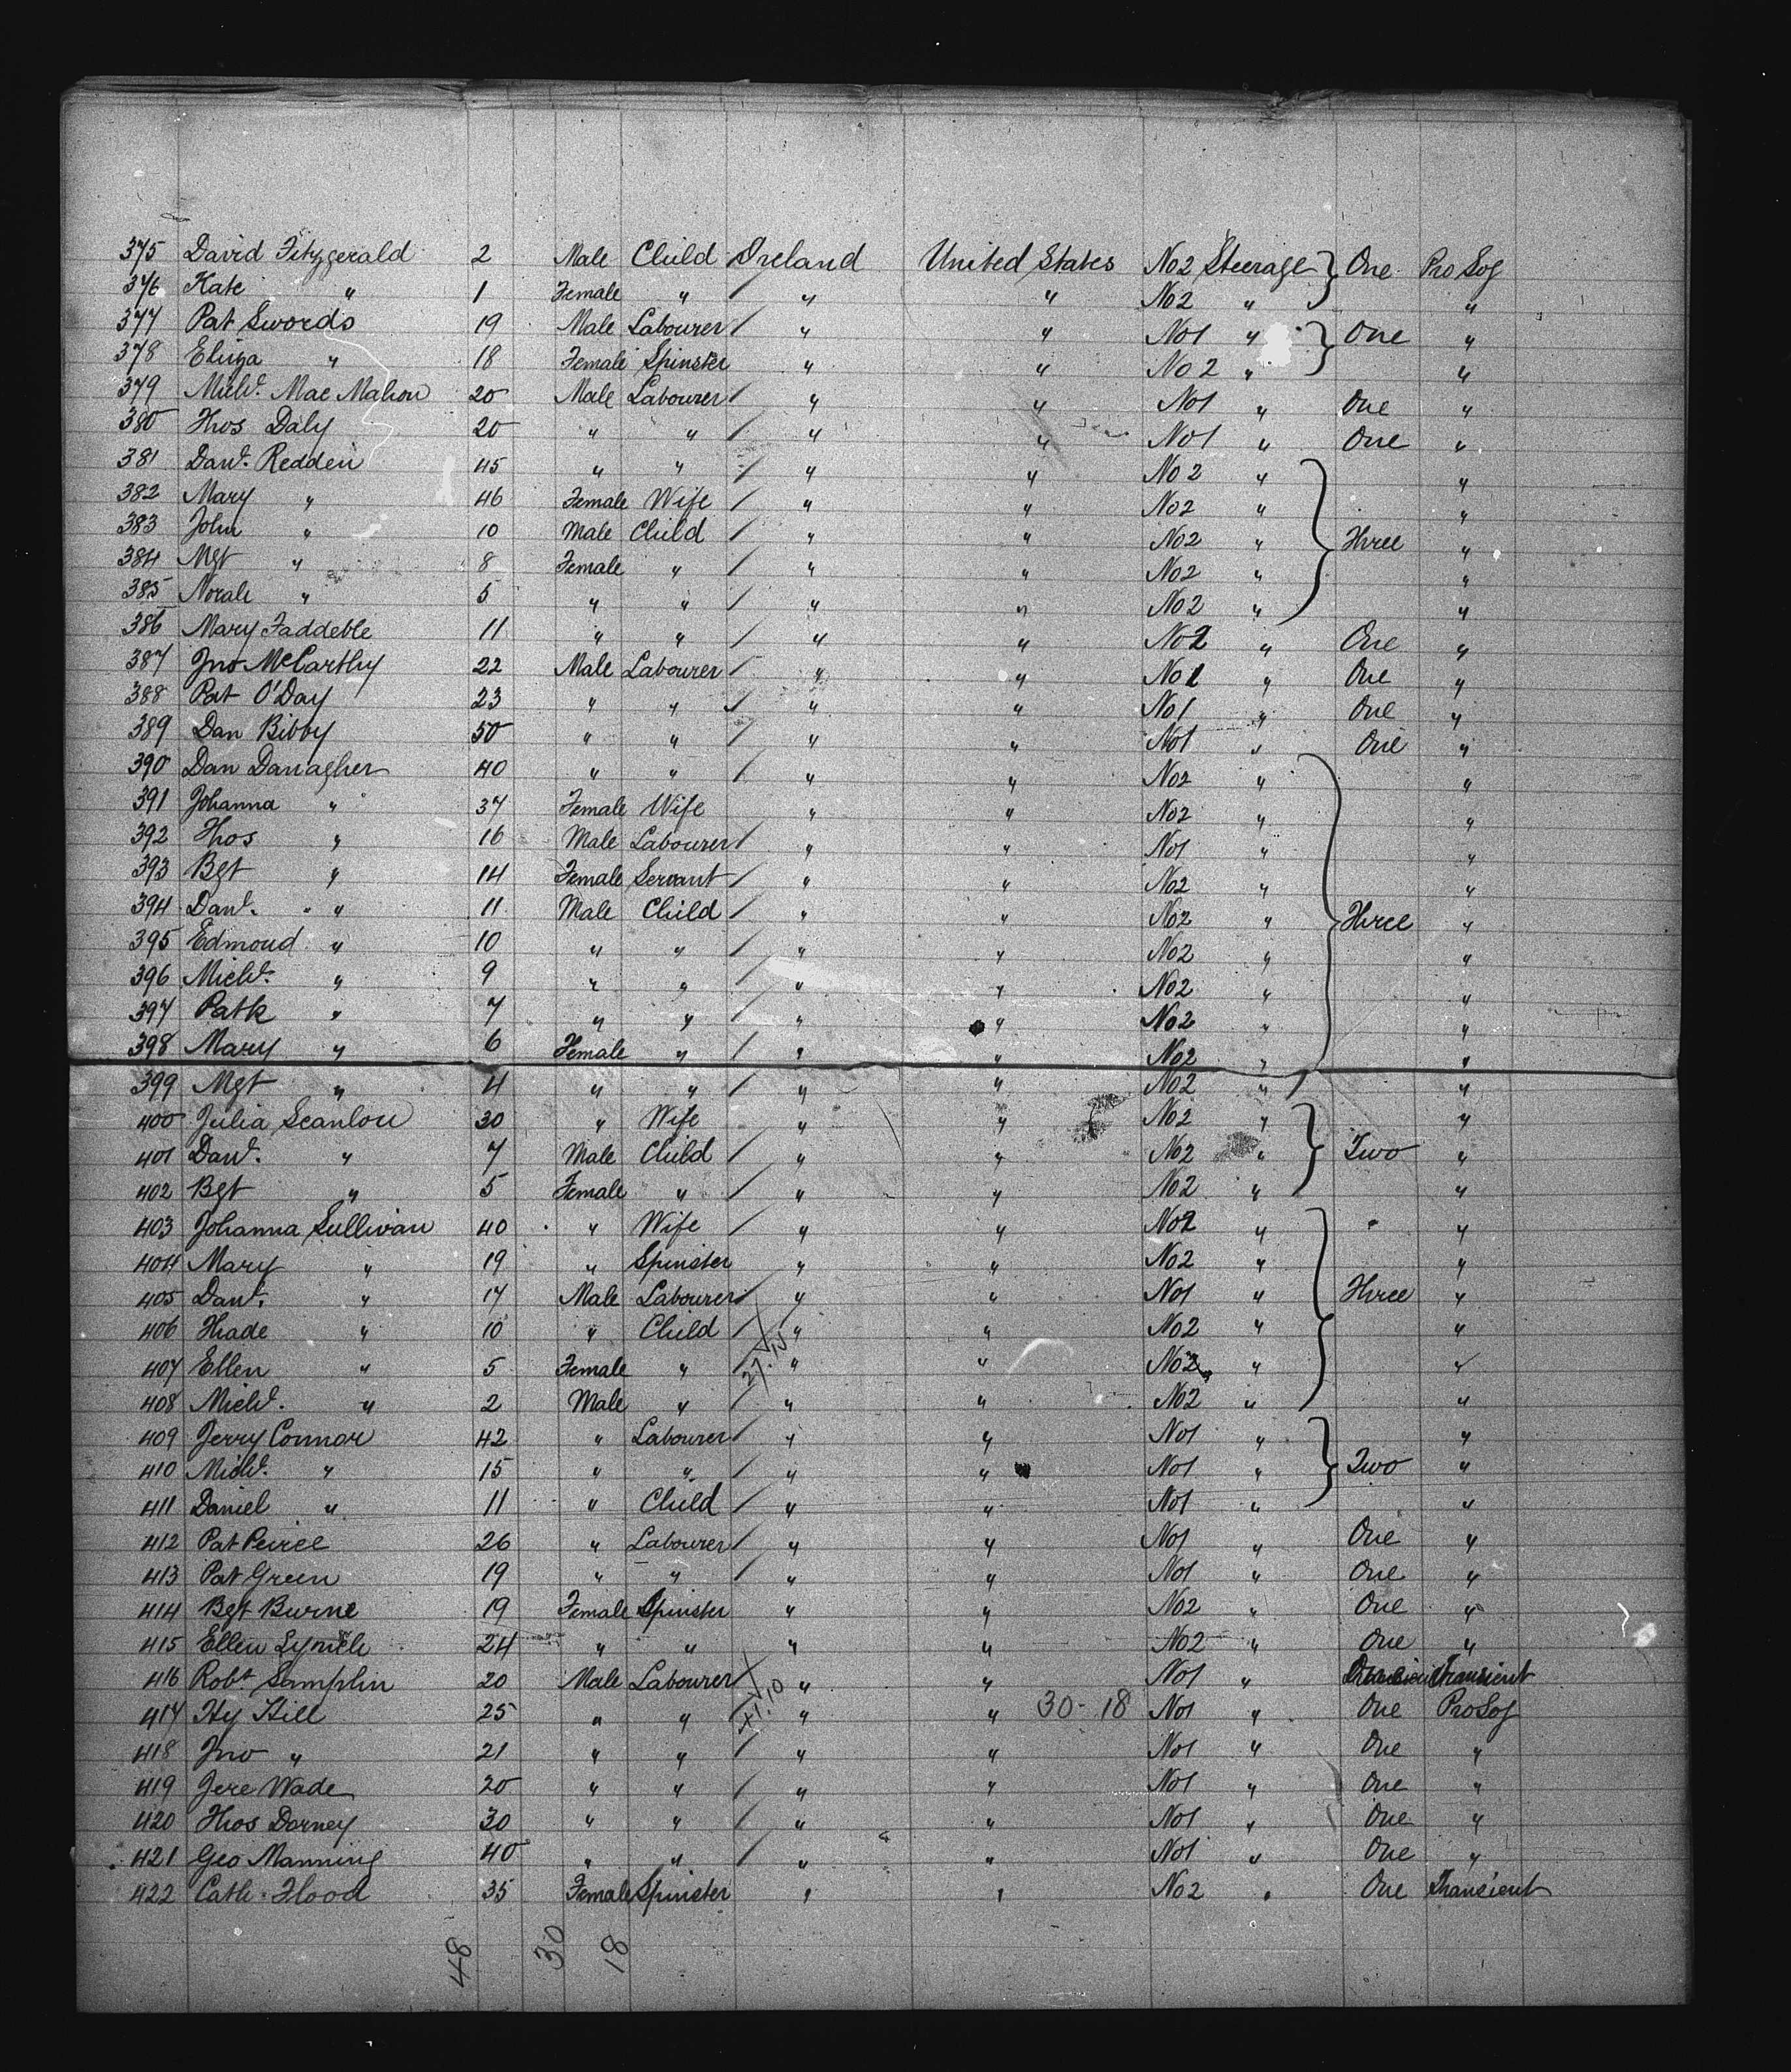 375 David Fitzgerald 2 Male Child Ireland United States No2 Steerage } One Pro Soj
376 Kate " 1 Female " / " " No2 " "
377 Pat Swords 19 Male Labourer / " " No1 " } One "
378 Eliza " 18 Female Spinster " " No2 " "
379 Michl. Mac Mahon 20 Male Labourer / " " No1 " One "
380 Thos Daly 20 " " / " " No1 " One "
381 Danl. Redden 45 " " / " " No2 " "
382 Mary " 46 Female Wife / " " No2 " "
383 John " 10 Male Child / " " No2 " } Three "
384 Mgt " 8 Female " / " " No2 " "
385 Norah " 5 " " / " " No2 " "
386 Mary Faddeble 11 " " / " " No2 " One "
387 Jno McCarthy 22 Male Labourer / " " No1 " One "
388 Pat O'Day 23 " " / " " No1 " One "
389 Dan Bibby 50 " " / " " No1 " One "
390 Dan Danagher 40 " " / " " No2 " "
391 Johanna " 37 Female Wife " " No2 " "
392 Thos " 16 Male Labourer / " " No1 " "
393 Bgt " 14 Female Servant / " " No2 " "
394 Danl. " 11 Male Child / " " No2 " } Three "
395 Edmond " 10 " " / " " No2 " "
396 Michl. " 9 " " / " " No2 " "
397 Patk " 7 " " / " " No2 " "
398 Mary " 6 Female " / " " No2 " "
399 Mgt " 4 " " / " " No2 " "
400 Julia Scanlon 30 " Wife " " No2 " "
401 Danl. " 7 Male Child / " " No2 " } Two "
402 Bgt " 5 Female " / " " No2 " "
403 Johanna Sullivan 40 " Wife / " " No2 " "
404 Mary " 19 " Spinster " " No2 " "
405 Danl. " 17 Male Labourer / " " No1 " Three "
406 Thade " 10 " Child / " " No2 " } "
407 Ellen " 5 Female " / " " No2 " "
408 Michl. " 2 Male " / " " No2 " "
409 Jerry Connor 42 " Labourer / " " No1 " "
410 Michl. " 15 " " / " " No1 " } Two "
411 Daniel " 11 " Child / " " No1 " "
412 Pat Peirce 26 " Labourer / " " No1 " One "
413 Pat Green 19 " " / " " No1 " One "
414 Bgt Burne 19 Female Spinster " " No2 " One "
415 Ellen Lynch 24 " " " " No2 " One "
416 Robt Samplin 20 Male Labourer / " " No1 " Transient
417 Hy Hill 25 " " / " " 30-18 No1 " One Pro Soj
418 Jno " 21 " " / " " No1 " One "
419 Jere Wade 20 " " / " " No1 " One "
420 Thos Darney 30 " " / " " No1 " One "
421 Geo Manning 40 " " / " " No1 " One "
422 Cath. Flood 35 Female Spinster " " No2 " One Transient
48 30 18